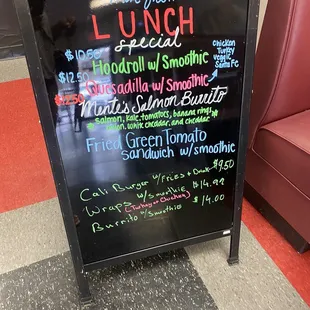 LUNCH
special
$10.50 Hoodroll w/ Smoothie
chicken
Turkey
veggie
Santa Fe
$12.50 Quesadilla w/ Smoothie
Mente's Salmon Burrito
Salmon, kale, tomatoes, banana rings
white cheddar, and cheddar
Fried Green Tomato
sandwich w/ smoothie
Cali Burger w/ Fries & Drink $9.50
Wraps w/ smoothie $14.99
(Turkey or Chicken)
Burrito w/ Smoothie $14.00